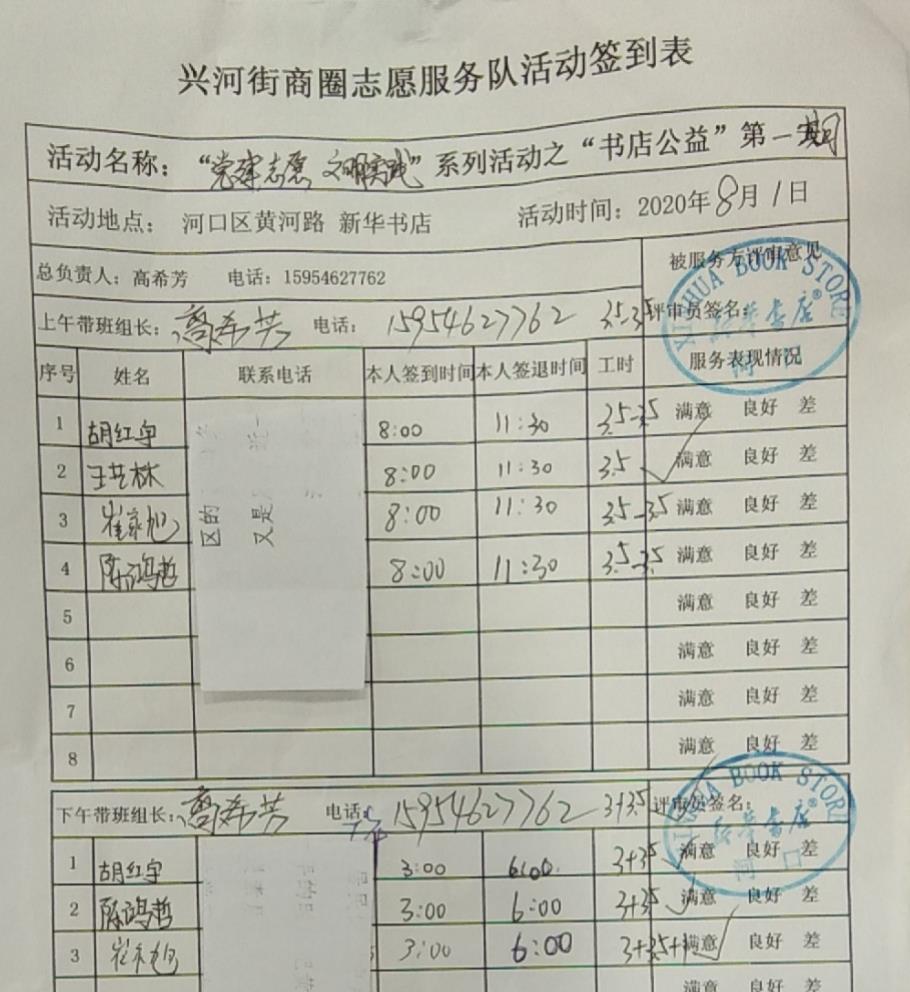 兴河街商圈志愿服务队活动签到表
活动名称：“党建志愿 文明实践”系列活动之“书店公益”第一期
活动地点： 河口区黄河路 新华书店 活动时间：2020年8月1日
总负责人：高希芳 电话：15954627762 被服务方评审意见
上午带班组长：高希芳 电话：15954627762 3.5-3.5 评审员签名：
XINHUA BOOK STORE
新华书店®
河口
序号 姓名 联系电话 本人签到时间 本人签退时间 工时 服务表现情况
1 胡红宇 8:00 11:30 3.5-3.5 满意 良好 差
2 王艺林 8:00 11:30 3.5 满意 良好 差
3 崔家旭 区的 又是 8:00 11:30 3.5-3.5 满意 良好 差
4 陈鸿哲 8:00 11:30 3.5-3.5 满意 良好 差
5 满意 良好 差
6 满意 良好 差
7 满意 良好 差
8 满意 良好 差
下午带班组长：高希芳 电话：15954627762 3+3.5 评审员签名：
下午
XINHUA BOOK STORE
新华书店®
河口
1 胡红宇 3:00 6:00 3+3.5 满意 良好 差
2 陈鸿哲 3:00 6:00 3+3.5 满意 良好 差
3 崔家旭 3:00 6:00 3+3.5+ 满意 良好 差
满意 良好 差